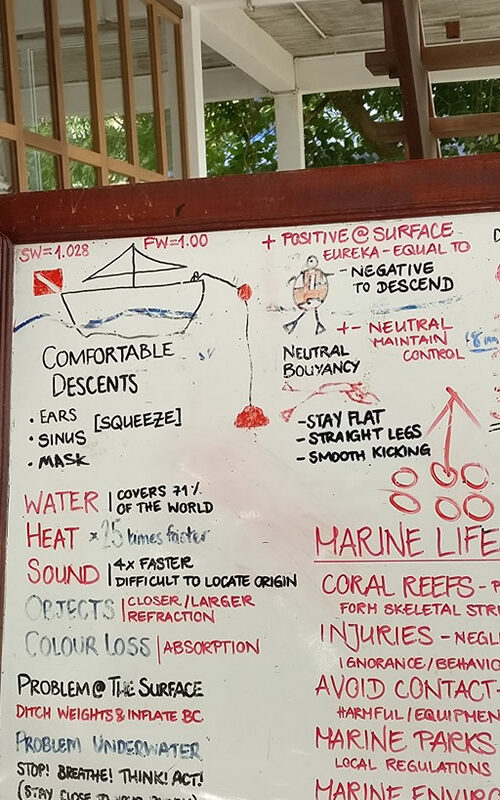 SW=1.028
FW=1.00
+ POSITIVE @ SURFACE
EUREKA - EQUAL TO
- NEGATIVE
TO DESCEND
+- NEUTRAL
MAINTAIN
CONTROL
NEUTRAL
BOUYANCY
- STAY FLAT
- STRAIGHT LEGS
- SMOOTH KICKING
COMFORTABLE
DESCENTS
• EARS
• SINUS
• MASK
[SQUEEZE]
WATER | COVERS 71%
OF THE WORLD
HEAT × 25 times faster
SOUND | 4X FASTER
DIFFICULT TO LOCATE ORIGIN
OBJECTS | CLOSER/LARGER
REFRACTION
COLOUR LOSS | ABSORPTION
PROBLEM @ THE SURFACE
DITCH WEIGHTS & INFLATE BC
PROBLEM UNDERWATER
STOP! BREATHE! THINK! ACT!
(STAY CLOSE TO YOUR
MARINE LIFE
CORAL REEFS -
FORM SKELETAL STR
INJURIES - NEGL
IGNORANCE/BEHAVIO
AVOID CONTACT-
HARMFUL/EQUIPMEN
MARINE PARKS
LOCAL REGULATIONS
MARINE ENVIRO